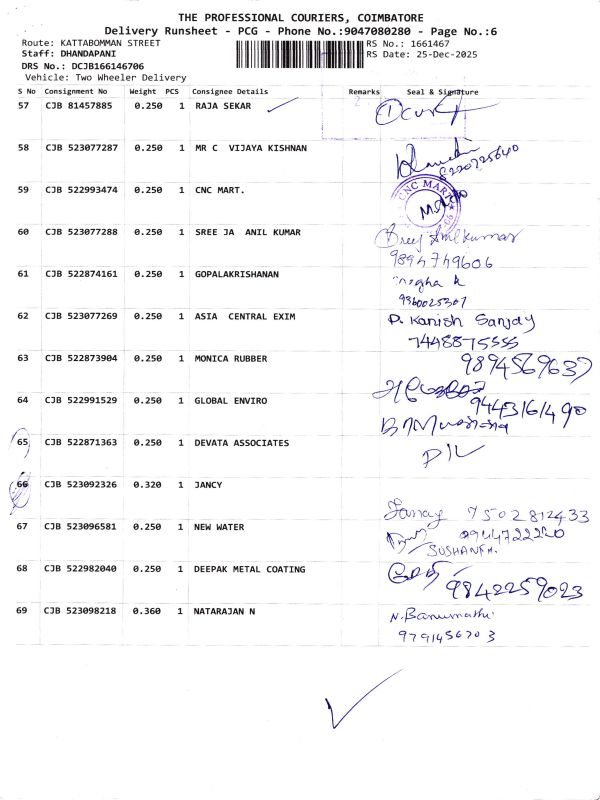 THE PROFESSIONAL COURIERS, COIMBATORE
Delivery Runsheet - PCG - Phone No.:9047080280 - Page No.:6
Route: KATTABOMMAN STREET RS No.: 1661467
Staff: DHANDAPANI RS Date: 25-Dec-2025
DRS No.: DCJB166146706
Vehicle: Two Wheeler Delivery
S No Consignment No Weight PCS Consignee Details Remarks Seal & Signature
57 CJB 81457885 0.250 1 RAJA SEKAR
58 CJB 523077287 0.250 1 MR C VIJAYA KISHNAN
8220725640
59 CJB 522993474 0.250 1 CNC MART.
CNC MART
60 CJB 523077288 0.250 1 SREE JA ANIL KUMAR
Sreej Anil Kumar
9894749606
61 CJB 522874161 0.250 1 GOPALAKRISHANAN
9360025307
62 CJB 523077269 0.250 1 ASIA CENTRAL EXIM
P. Kanish Sanjay
7448875555
63 CJB 522873904 0.250 1 MONICA RUBBER
9894569637
64 CJB 522991529 0.250 1 GLOBAL ENVIRO
9443161490
65 CJB 522871363 0.250 1 DEVATA ASSOCIATES
D/L
66 CJB 523092326 0.320 1 JANCY
Jancy 7502812433
67 CJB 523096581 0.250 1 NEW WATER
0944722220
SUSHANTH.
68 CJB 522982040 0.250 1 DEEPAK METAL COATING
9842259023
69 CJB 523098218 0.360 1 NATARAJAN N
N. Banumathi
9791456703